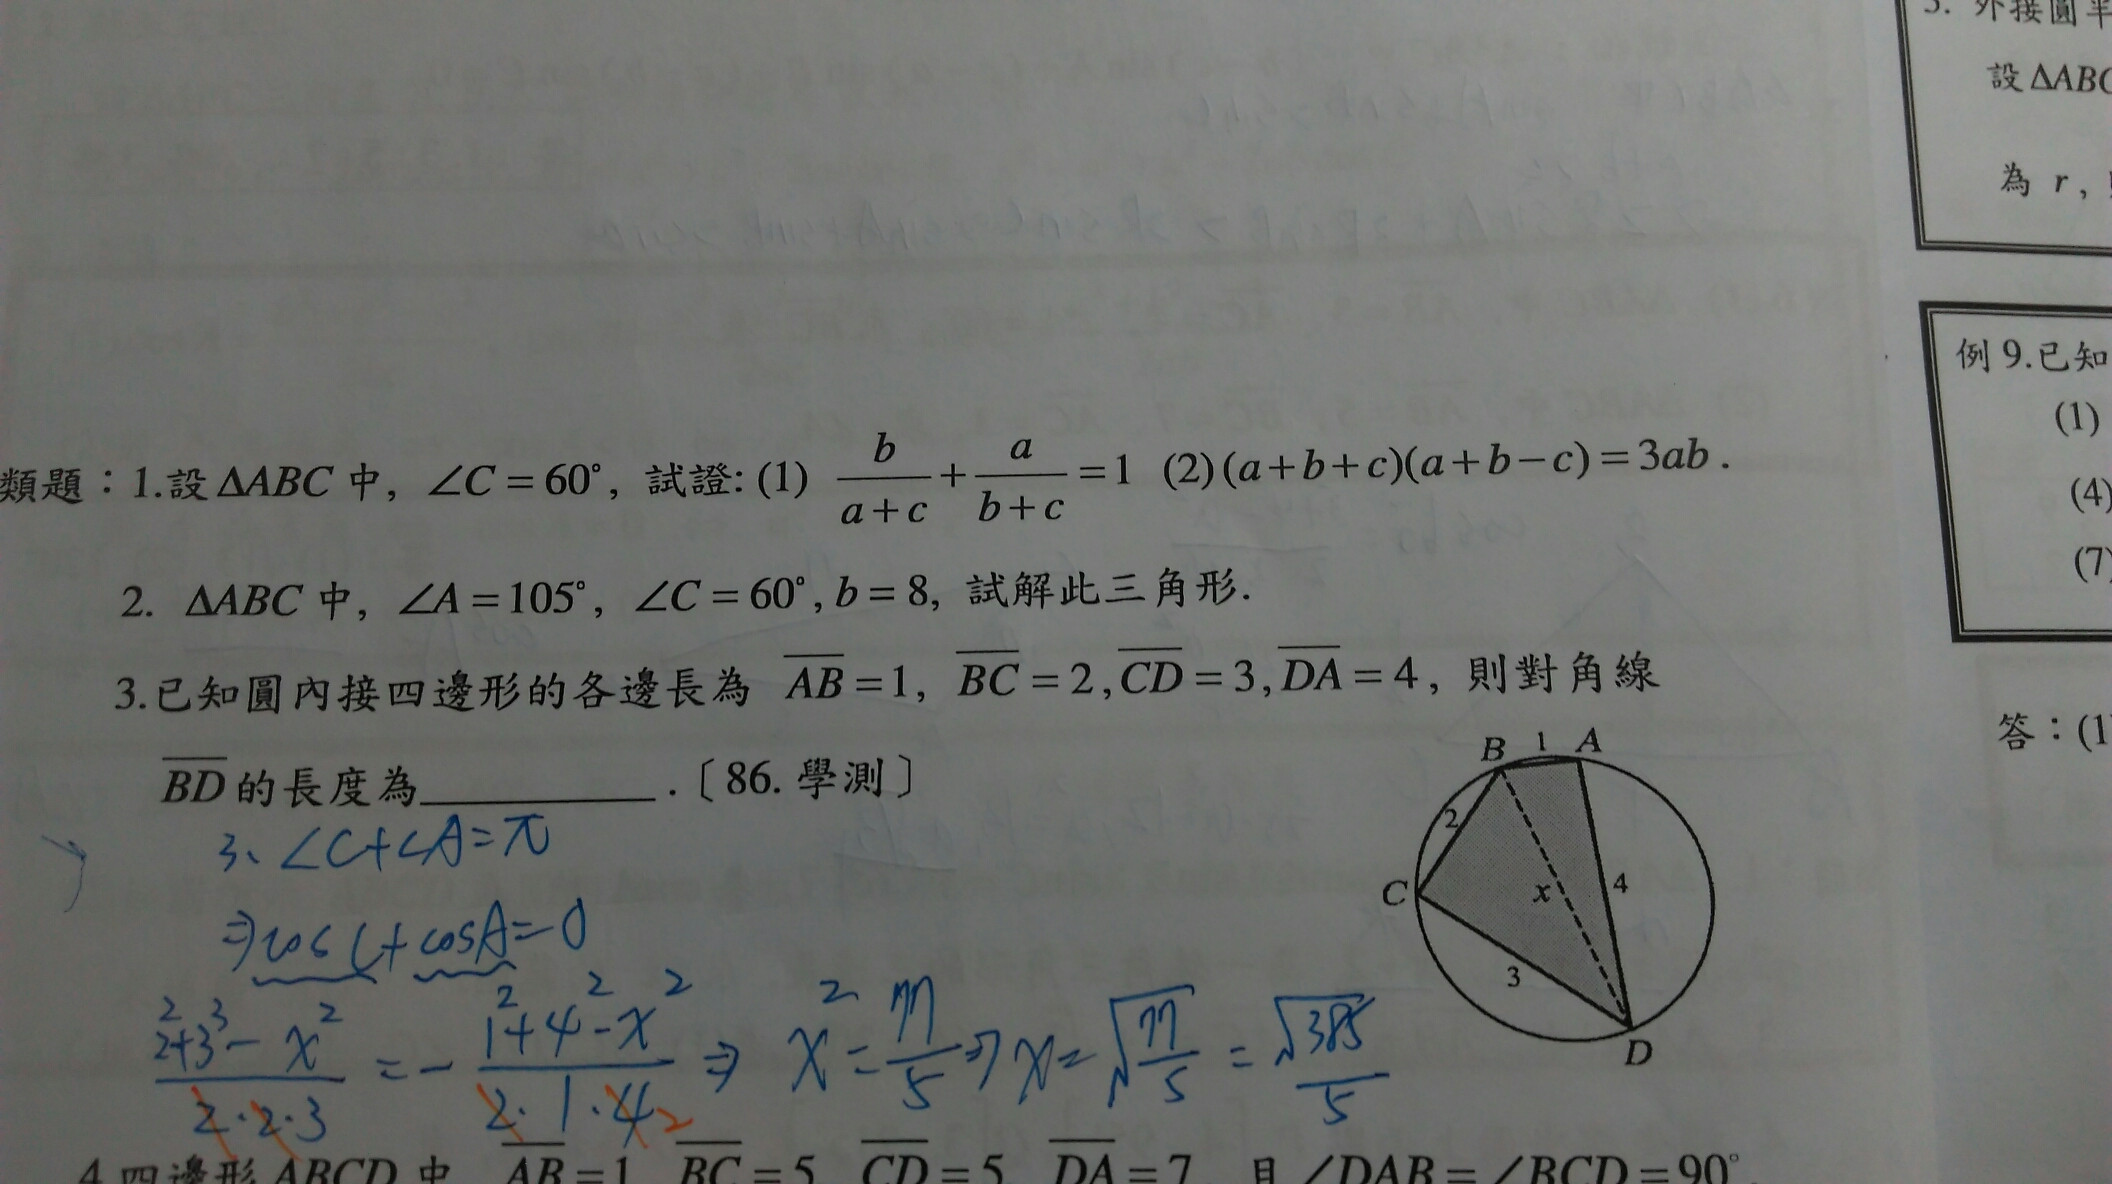 5. 外接圓半
設ΔABC
為 r,
例 9.已知
(1)
(4)
(7)
答：(1
類題：1.設ΔABC 中, ∠C = 60°, 試證: (1) b/(a+c) + a/(b+c) = 1 (2)(a+b+c)(a+b−c) = 3ab .
2. ΔABC 中, ∠A = 105°, ∠C = 60°, b = 8, 試解此三角形.
3.已知圓內接四邊形的各邊長為 AB = 1, BC = 2, CD = 3, DA = 4, 則對角線
BD 的長度為 . 〔 86. 學測〕
B 1 A
2
C x 4
3
D
3、∠C+∠A=π
⇒cos C+cosA=0
(2²+3³−x²)/(2·2·3) = −(1²+4²−x²)/(2·1·4) 2 ⇒ x²=77/5 ⇒ x=√(77/5) = √385/5
4.四邊形 ABCD 中 AB = 1 BC = 5 CD = 5 DA = 7 且 ∠DAB = ∠BCD = 90°